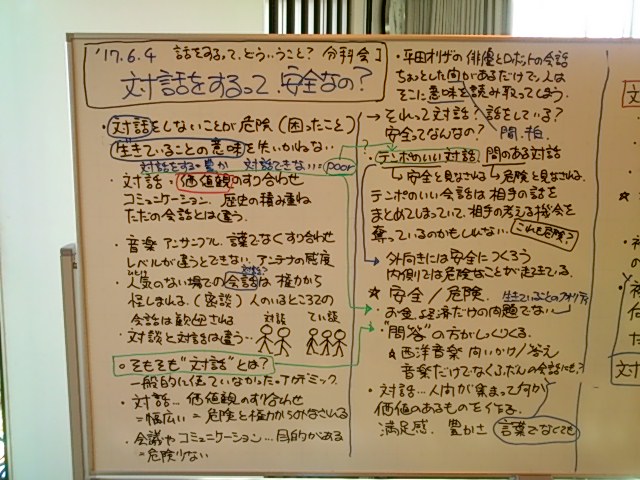 '17.6.4 話をするって、どういうこと? 分科会1
対話をするって、安全なの?
・対話をしないことが危険(困ったこと)
生きていることの意味を失いかねない
対話をする=豊か 対話できない=poor
・対話…価値観のすり合わせ
コミュニケーション、歴史の積み重ね
ただの会話とは違う。
・音楽 アンサンブル、言葉でなくすり合わせ
レベルが違うとできない。アンテナの感度
・人気のない場での会話は権力から
対話?
怪しまれる。(密談) 人のいるところでの
会話は歓迎される
・対談と対話は違う…
対談 てい談
○そもそも"対話"とは?
一般的に使っていなかった。アカデミック
・対話…価値観のすり合わせ
=幅広い=危険と権力からみなされる
・会議やコミュニケーション…目的がある
=危険少ない
・平田オリザの俳優とロボットの会話
ちょっとした間があるだけで、人は
そこに意味を読み取ってしまう。
→それって対話?話をしている?
安全ってなんなの? 間、拍
・テンポのいい対話 間のある対話
↳安全と見なされる ↳危険と見なされる。
テンポのいい会話は相手の話を
まとめてしまっていて、相手の考える機会を
奪っているのかもしれない。これも危険?
→外向きには安全につくろう
内側では危険なことが起きている。
☆安全/危険、生きていることのクオリティ
・お金、経済だけの問題でない
・"問答"の方がしっくりくる。
☆西洋音楽 問いかけ/答え
音楽だけでなくふだんの会話にも?
・対話…人間が集まって何か
価値のあるものを作る。
満足感、豊かさ 言葉でなくても